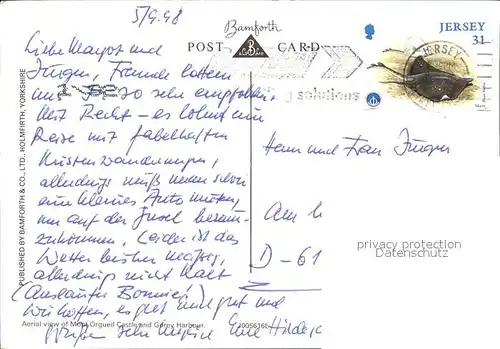 5/9.98
Liebe Margot und
Jürgen, Freunde hatten
uns so sehr empfohlen
Mit Recht - es lohnt eine
Reise mit fabelhaften
Küstenwanderungen,
allerdings muß man schon
ein kleines Auto mieten,
um auf der Insel herum-
zukommen. Leider ist das
Wetter bisher mäßig,
allerdings nicht kalt
(Ausläufer Bonnie!)
Wir hoffen, es geht Euch gut und
grüßen sehr herzlich Eure
Bamforth
POST CARD
solutions
JERSEY
31
JERSEY
Herrn und Frau Jürgen
Am
D-61
privacy protection
Datenschutz
PUBLISHED BY BAMFORTH & CO., LTD., HOLMFIRTH, YORKSHIRE
Aerial view of Mont Orgueil Castle and Gorey Harbour.